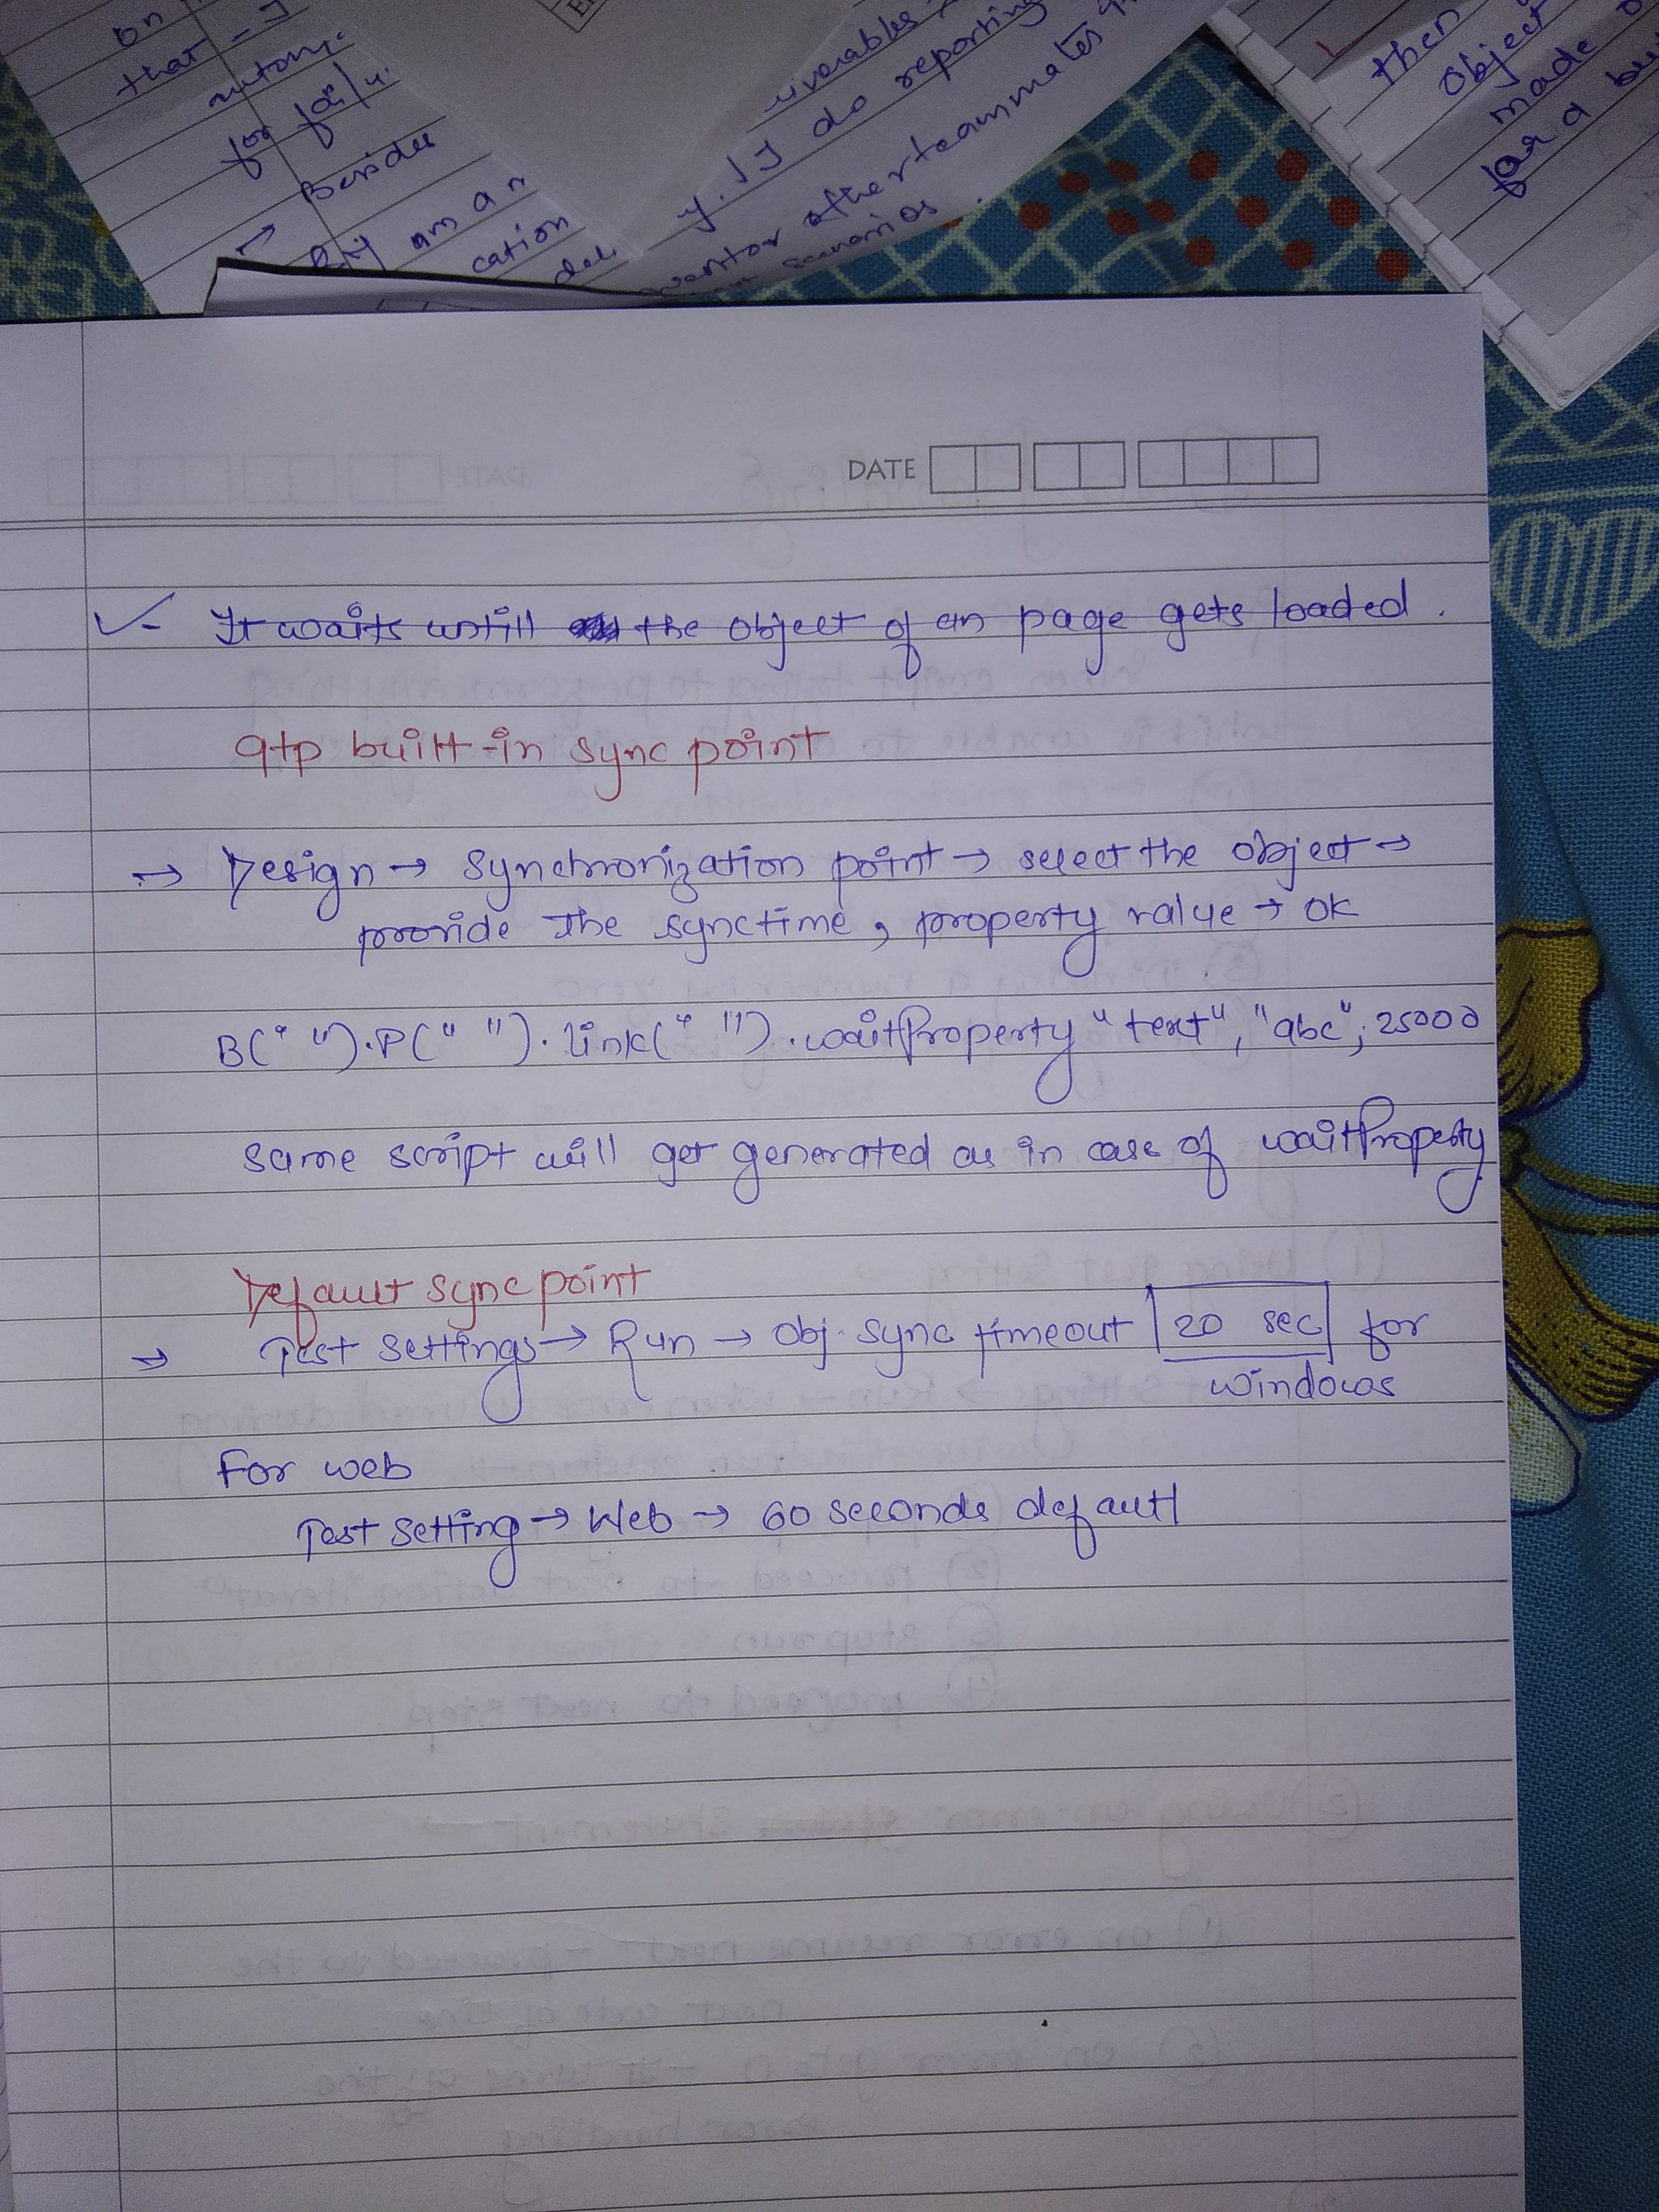 on
that - I
for
→ Besides
am a
cation
y. I do reporting
after teammates
scenarios.
then
object
made
for a
DATE
✓- It waits untill the object of an page gets loaded.
qtp built-in sync point
→ Design → synchronization point → select the object →
provide the sync time, property value → OK
B(" ").P(" ").link(" ").waitProperty "text", "abc", 25000
same script will get generated as in case of waitProperty
Default sync point
→ Test settings → Run → obj. sync timeout 20 sec for
windows
For web
Test setting → Web → 60 seconds default